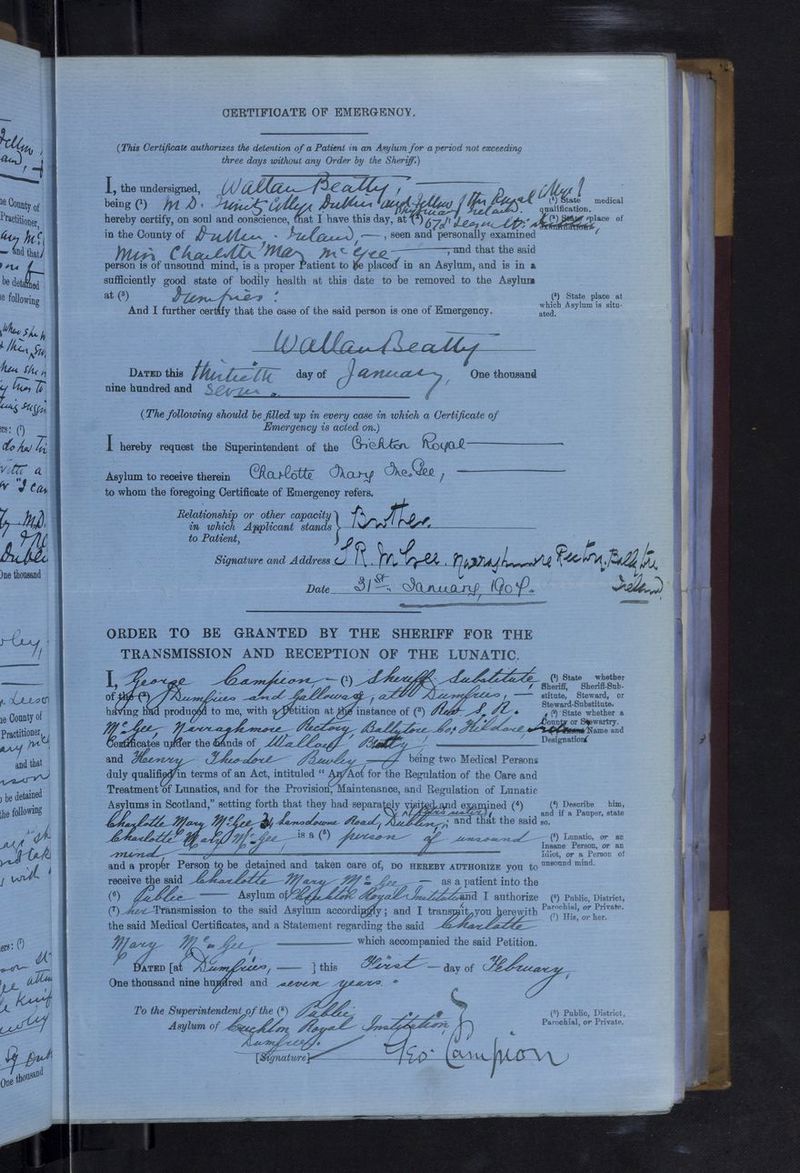 CERTIFICATE OF EMERGENCY.
(This Certificate authorizes the detention of a Patient in an Asylum for a period not exceeding
three days without any Order by the Sheriff.)
I, the undersigned, Wallace Beatty,
being (¹) M.D. Trinity College Dublin and Fellow of the Royal College
Physicians Ireland.
(¹) State medical
qualification.
hereby certify, on soul and conscience, that I have this day, at (²) 67
(²) State place of
examination,
in the County of Dublin, Ireland, seen and personally examined
Miss Charlotte Mary McGee and that the said
person is of unsound mind, is a proper Patient to be placed in an Asylum, and is in a
sufficiently good state of bodily health at this date to be removed to the Asylum
at (³) Dumfries.
(³) State place at
which Asylum is situ-
ated.
And I further certify that the case of the said person is one of Emergency.
Wallace Beatty
DATED this thirtieth day of January, One thousand
nine hundred and seven.
(The following should be filled up in every case in which a Certificate of
Emergency is acted on.)
I hereby request the Superintendent of the Crichton Royal
Asylum to receive therein Charlotte Mary McGee,
to whom the foregoing Certificate of Emergency refers.
Relationship or other capacity
in which Applicant stands
to Patient,
Brother.
Signature and Address S R. McGee. Narraghmore Rectory, Ballytore
Ireland
Date 31st January, 1907.
ORDER TO BE GRANTED BY THE SHERIFF FOR THE
TRANSMISSION AND RECEPTION OF THE LUNATIC.
I, George Campion (¹) Sheriff Substitute
of the (²) Dumfries and Galloway, at Dumfries,
(¹) State whether
Sheriff, Sheriff-Sub-
stitute, Steward, or
Steward-Substitute.
having had produced to me, with a Petition at the instance of (³) Revd S. R.
McGee, Narraghmore Rectory, Ballytore Co. Kildare Ireland
(²) State whether a
County or Stewartry.
Name and
Designation
Certificates under the hands of Wallace Beatty,
and Henry Theodore Bewley, being two Medical Persons
duly qualified in terms of an Act, intituled "An Act for the Regulation of the Care and
Treatment of Lunatics, and for the Provision, Maintenance, and Regulation of Lunatic
Asylums in Scotland," setting forth that they had separately visited and examined (⁴)
Charlotte Mary McGee, Lansdowne Road, Dublin, and that the said
(⁴) Describe him,
and if a Pauper, state
so.
Charlotte Mary McGee, is a (⁵) person of unsound
mind,
(⁵) Lunatic, or an
Insane Person, or an
Idiot, or a Person of
unsound mind.
and a proper Person to be detained and taken care of, DO HEREBY AUTHORIZE you to
receive the said Charlotte Mary McGee as a patient into the
(⁶) Public Asylum of Crichton Royal Institution and I authorize
(⁷) her Transmission to the said Asylum accordingly; and I transmit you herewith
(⁶) Public, District,
Parochial, or Private.
(⁷) His, or her.
the said Medical Certificates, and a Statement regarding the said Charlotte
Mary McGee, which accompanied the said Petition.
DATED [at Dumfries, ] this First day of February,
One thousand nine hundred and seven years.
To the Superintendent of the (⁸) Public
Asylum of Crichton Royal Institution,
Dumfries.
(⁸) Public, District,
Parochial, or Private.
[Signature] Geo. Campion